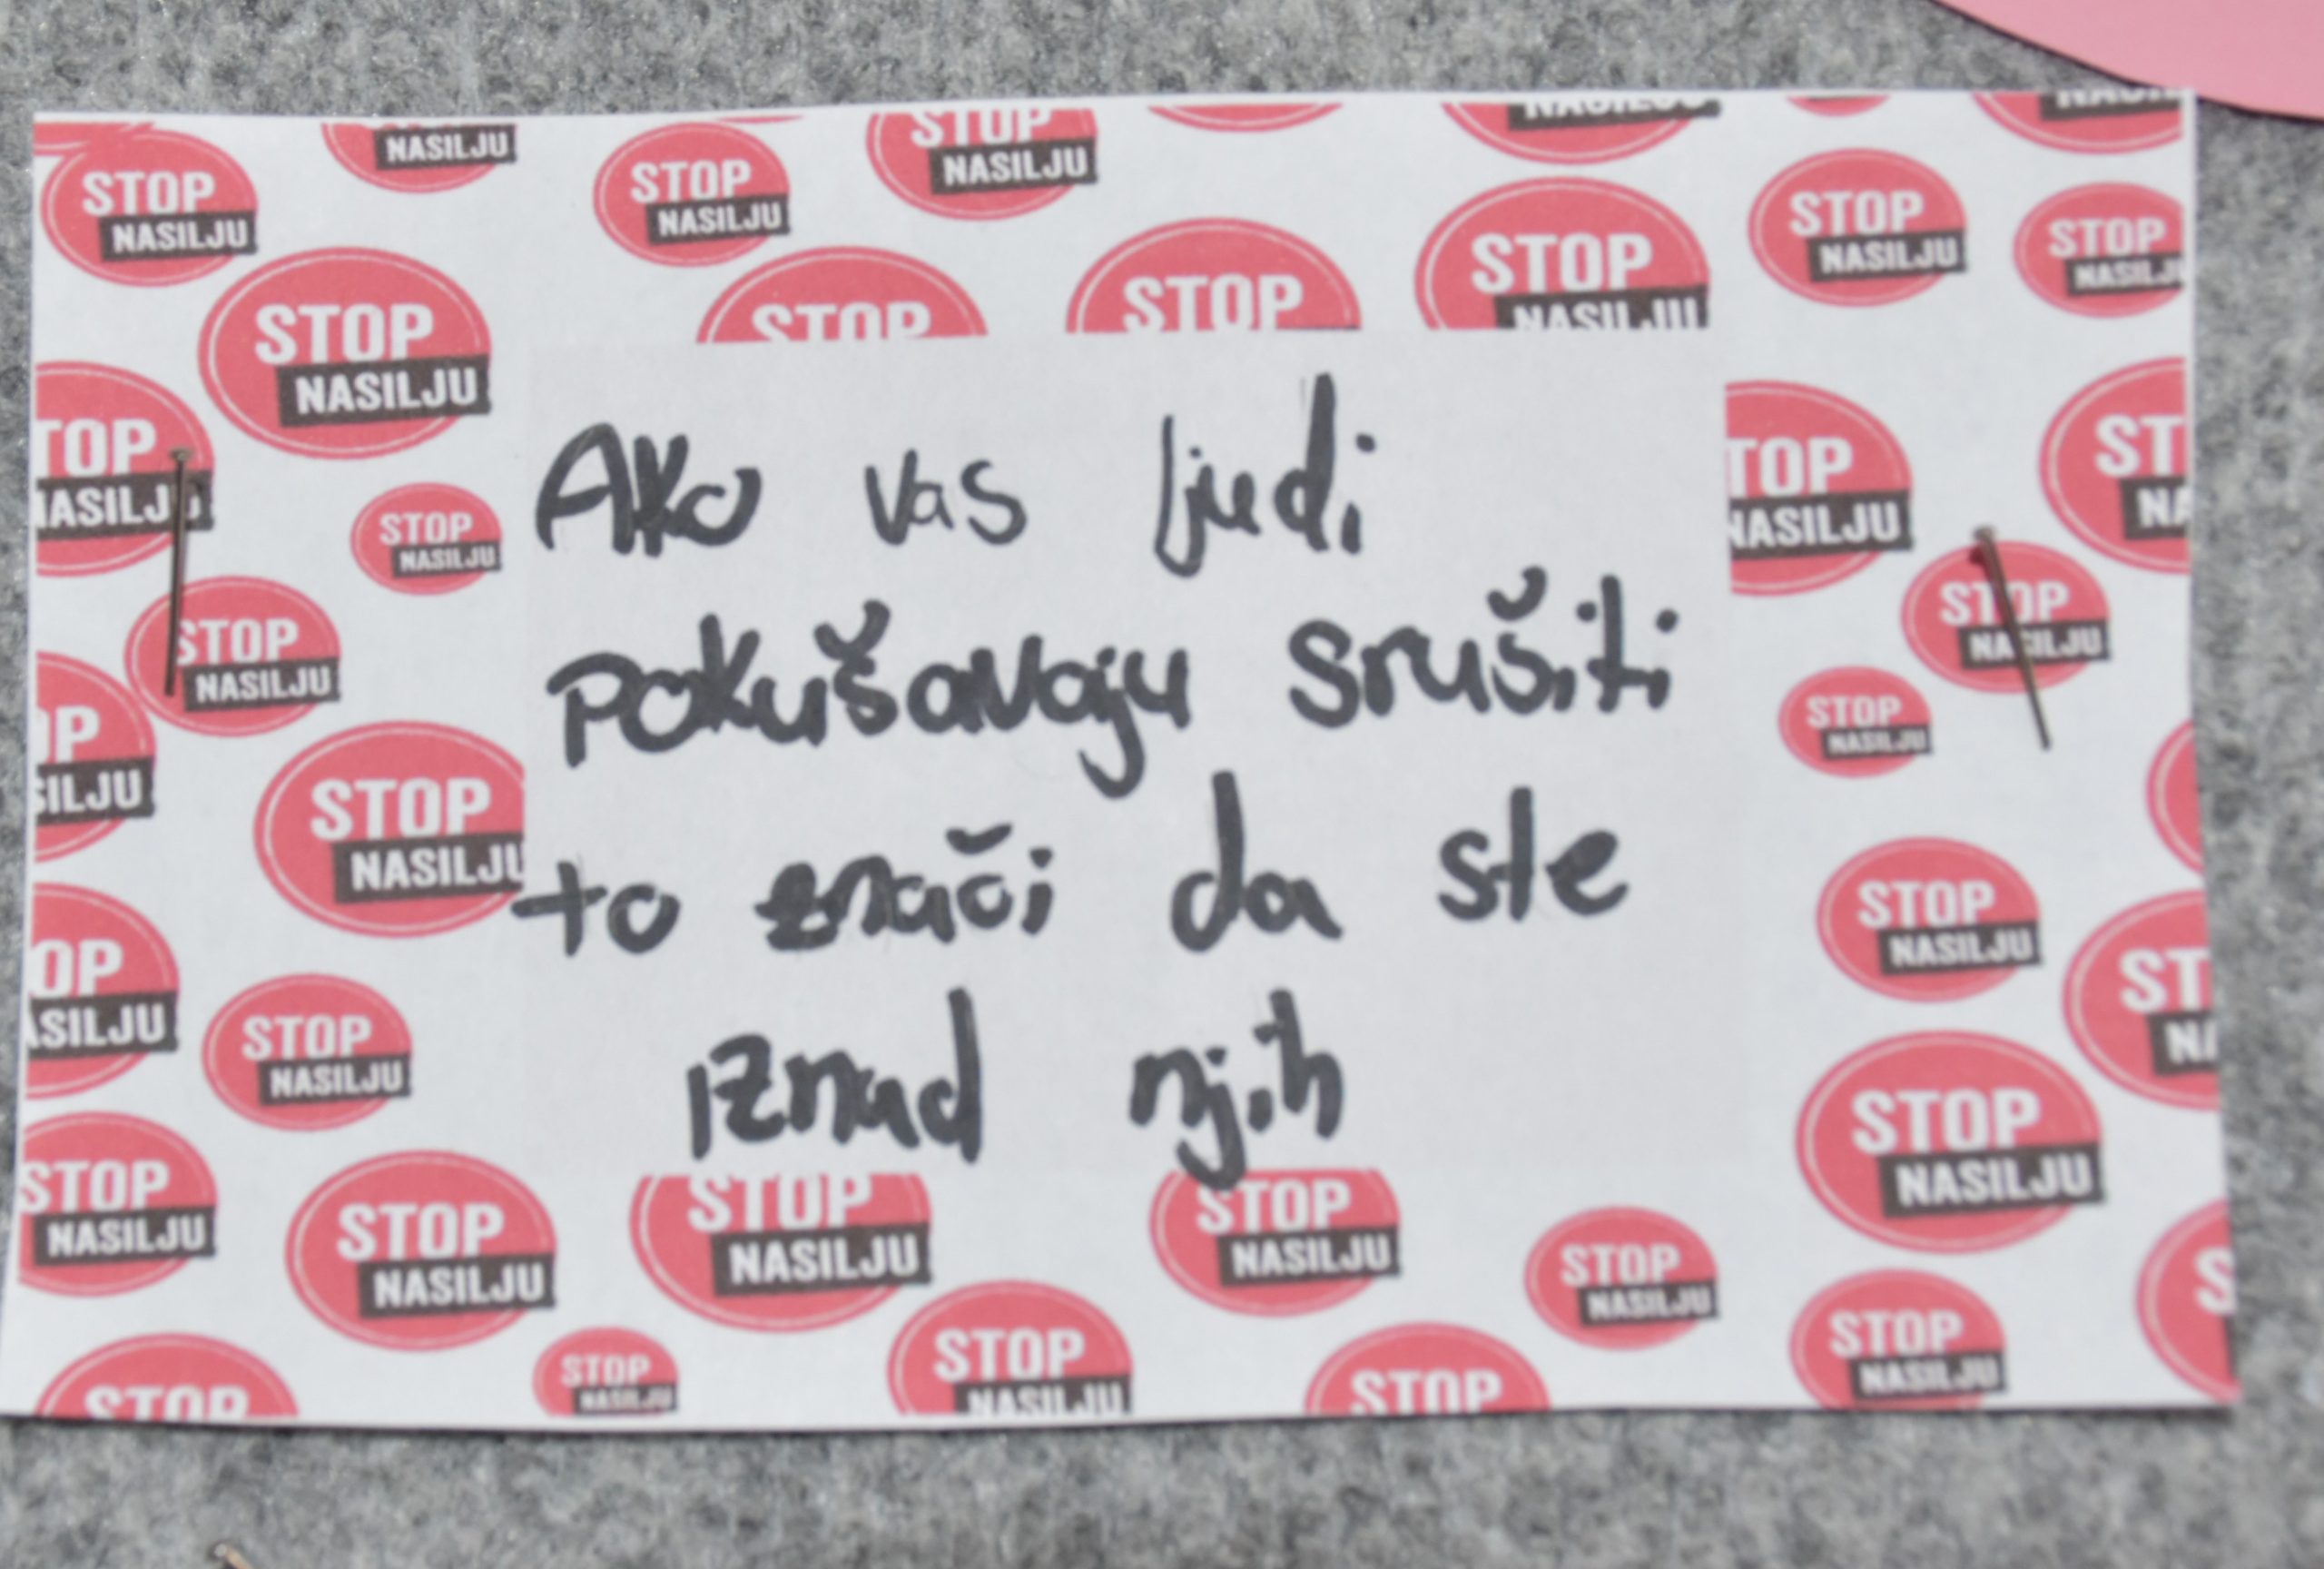 STOP NASILJU
Ako vas ljudi
pokušavaju srušiti
to znači da ste
iznad njih